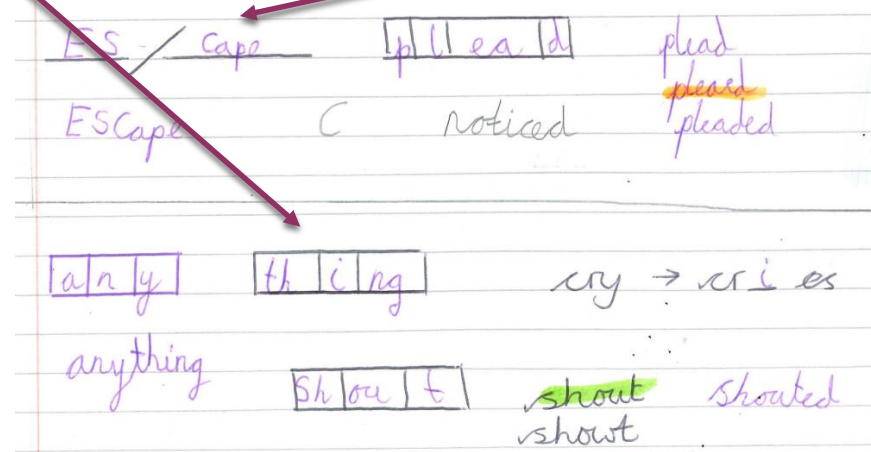 ES / cape p l ea d plead
pleaed
ESCape C noticed pleaded
a n y th i ng cry → cr i es
anything
Sh ou t shout shouted
showt